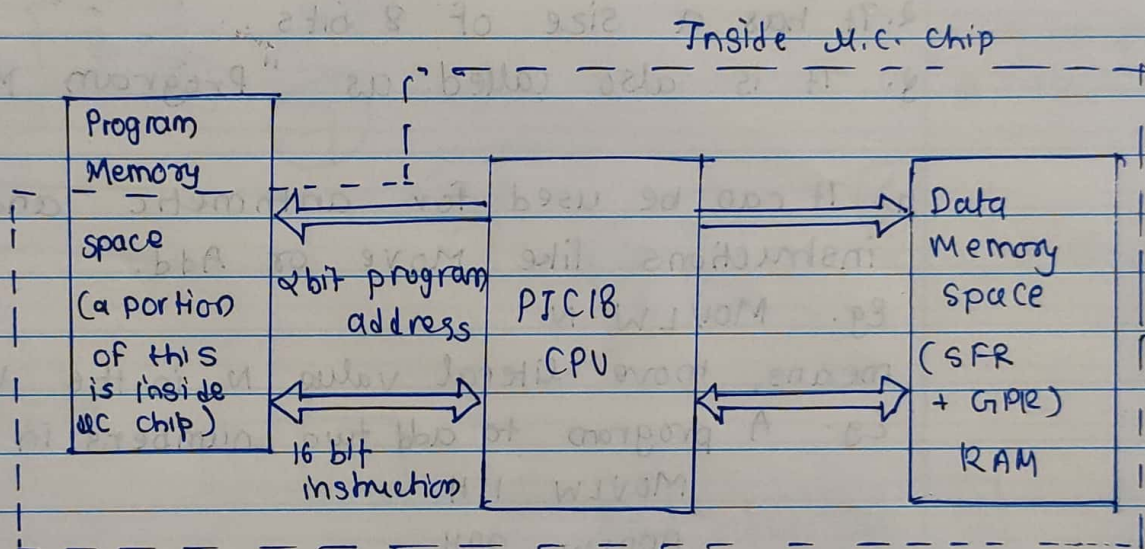 Inside μ.C. chip
Program
Memory
space
(a portion
of this
is inside
μC chip)
2bit program
address
16 bit
instruction
PIC18
CPU
Data
Memory
space
(SFR
+ GPR)
RAM